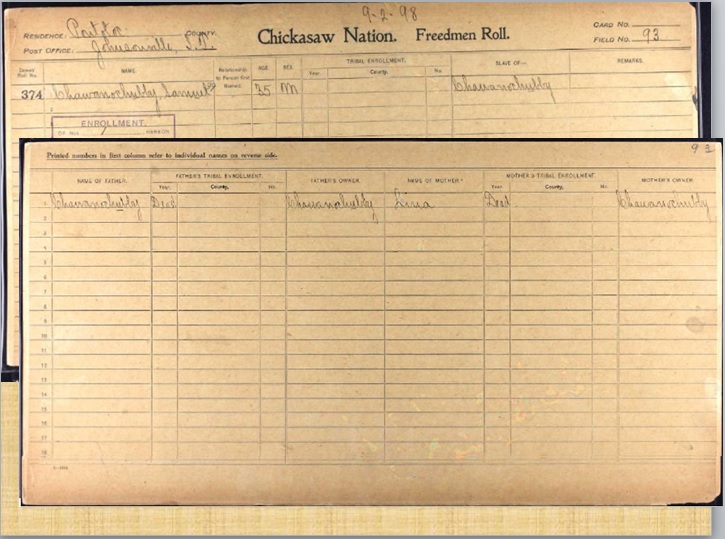 9-2-98
RESIDENCE: Pontotoc COUNTY. Chickasaw Nation. Freedmen Roll. CARD NO.
POST OFFICE: Johnsonville, I.T. FIELD NO. 93
Dawes' Roll No. NAME. Relationship to Person first Named. AGE SEX TRIBAL ENROLLMENT. SLAVE OF— REMARKS.
Year. County. No.
374 Chawanochubby, Samuel 35 M Chawanochubby
2
ENROLLMENT.
OF NOS. 1 HEREON
93
Printed numbers in first column refer to individual names on reverse side.
NAME OF FATHER. FATHER'S TRIBAL ENROLLMENT. FATHER'S OWNER. NAME OF MOTHER. MOTHER'S TRIBAL ENROLLMENT. MOTHER'S OWNER.
Year. County. No. Year County. No.
1 Chawanochubby Dead Chawanochubby Dead Chawanochubby
2
3
4
5
6
7
8
9
10
11
12
13
14
15
16
17
18